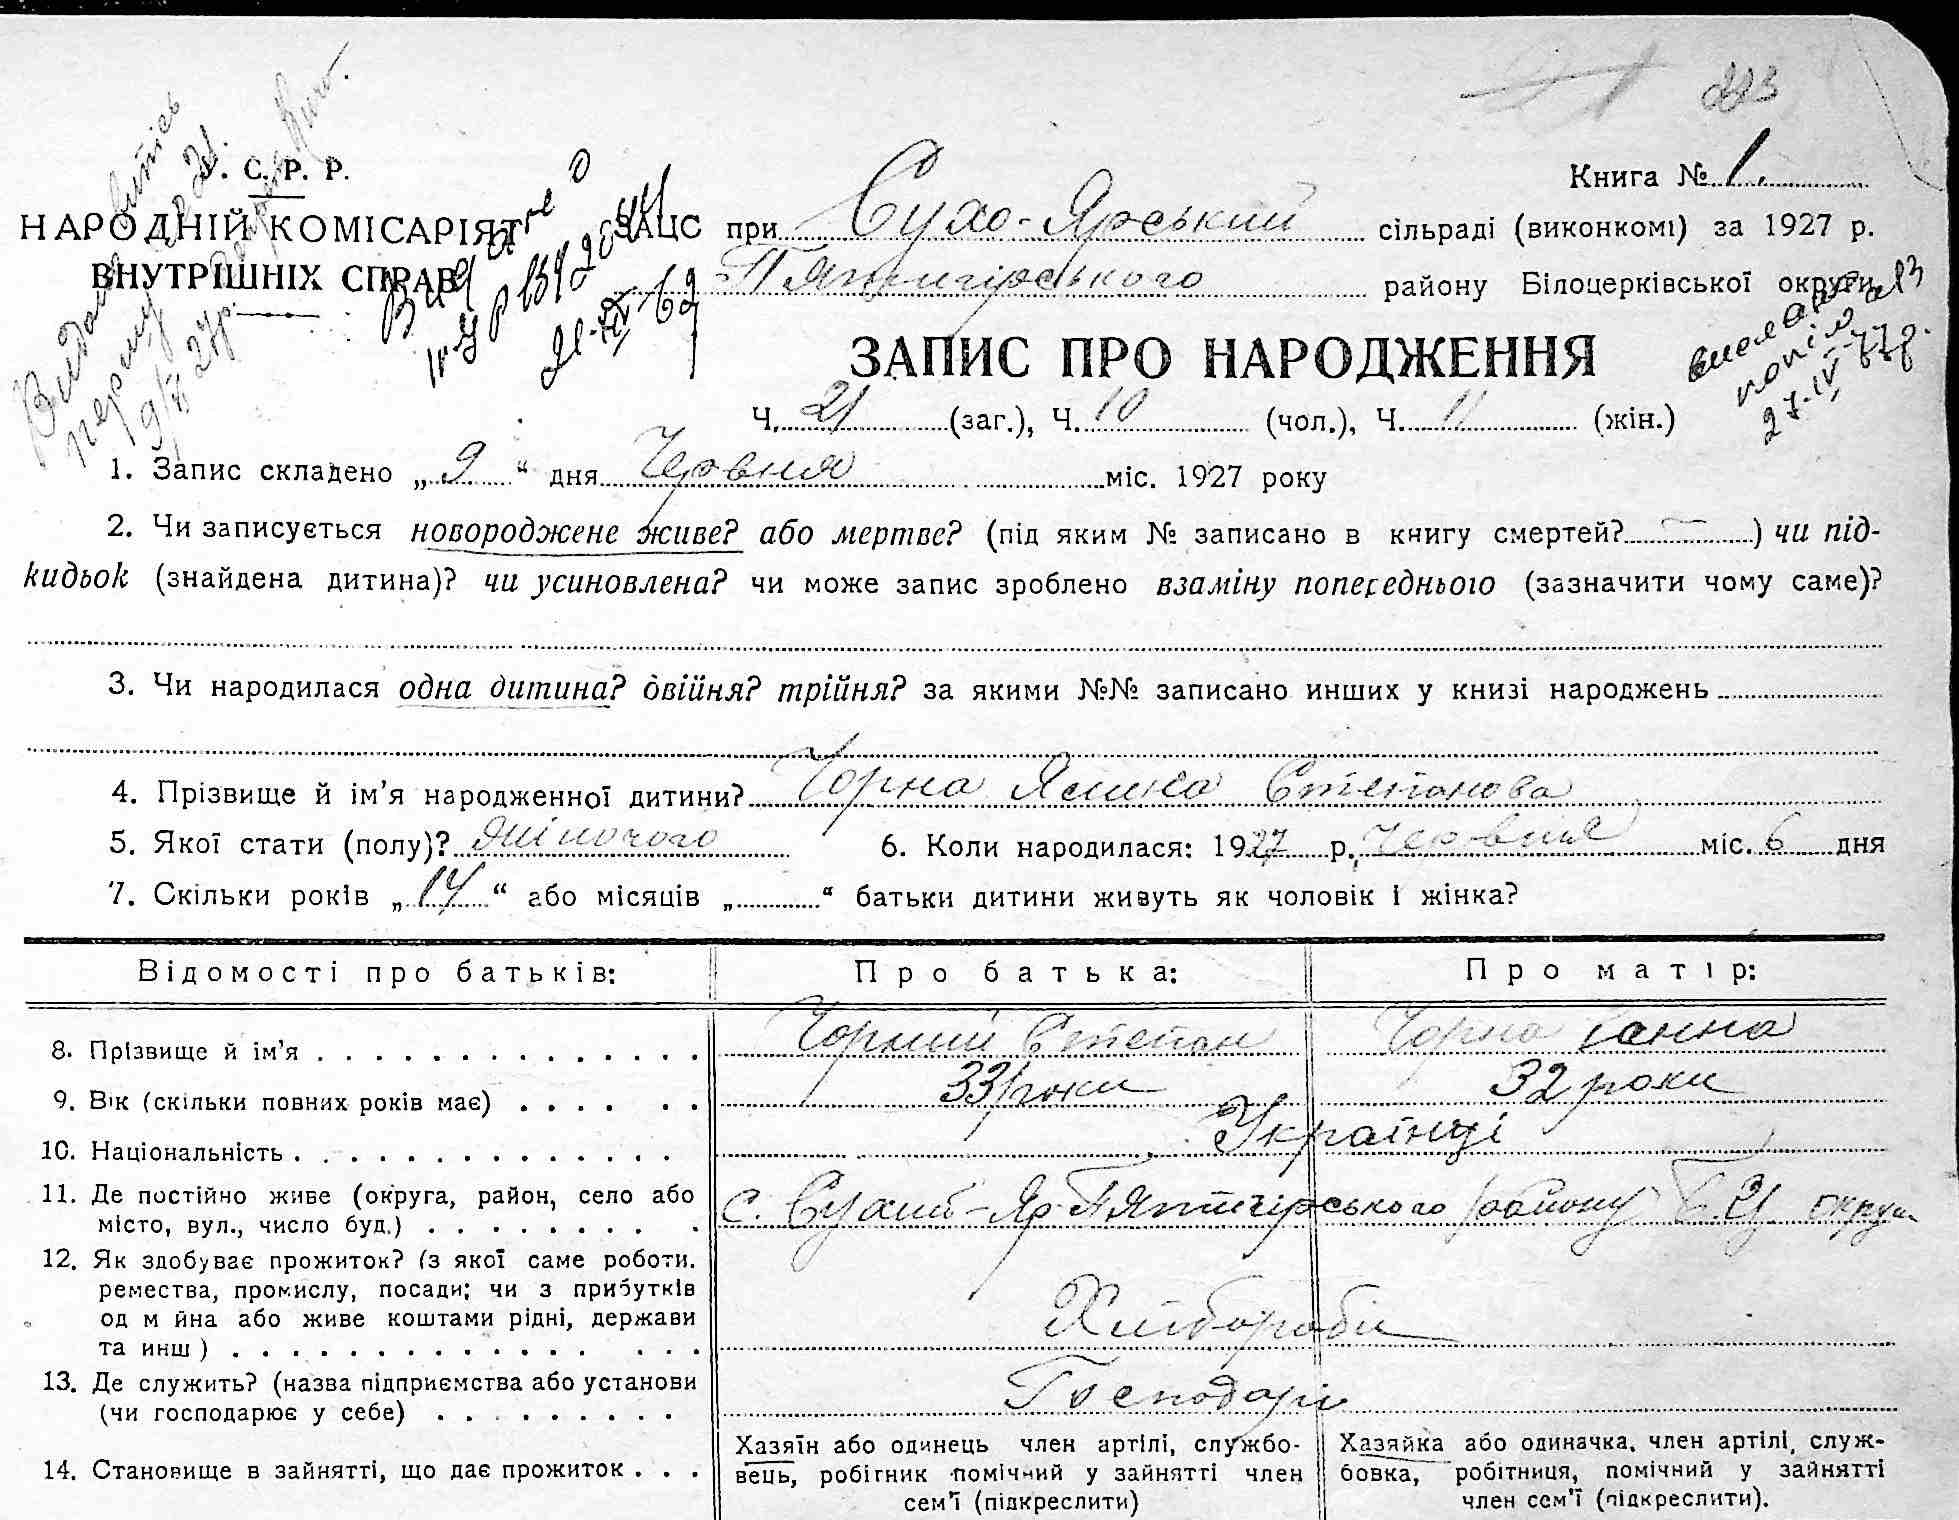 223
У. С. Р. Р.
Книга № 1.
НАРОДНІЙ КОМІСАРІЯТ
ВНУТРІШНІХ СПРАВ
ЗАЦС при Сухо-Ярський сільраді (виконкомі) за 1927 р.
Пятигірського району Білоцерківської округи
Видано
ЗАПИС ПРО НАРОДЖЕННЯ
копія
27.IV-77р.
Ч. 21 (заг.), Ч. 10 (чол.), Ч. 11 (жін.)
1. Запис складено „ 9 “ дня Червня міс. 1927 року
2. Чи записується новороджене живе? або мертве? (під яким № записано в книгу смертей? — ) чи під-
кидьок (знайдена дитина)? чи усиновлена? чи може запис зроблено взаміну попереднього (зазначити чому саме)?
3. Чи народилася одна дитина? двійня? трійня? за якими №№ записано инших у книзі народжень
4. Прізвище й ім'я народженної дитини? Чорна Ялина Степанова
5. Якої стати (полу)? жіночого 6. Коли народилася: 1927 р. червня міс. 6 дня
7. Скільки років „ 14 “ або місяців „ “ батьки дитини живуть як чоловік і жінка?
Відомості про батьків: Про батька: Про матір:
8. Прізвище й ім'я Чорний Степан Чорна Ганна
9. Вік (скільки повних років має) 33 роки 32 роки
10. Національність Українці
11. Де постійно живе (округа, район, село або
місто, вул., число буд.) с. Сухий-Яр Пятигірського району Б.Ц. округи
12. Як здобуває прожиток? (з якої саме роботи.
ремества, промислу, посади; чи з прибутків
од м йна або живе коштами рідні, держави
та инш) Хлібороби
13. Де служить? (назва підприємства або установи
(чи господарює у себе) Господарі
14. Становище в зайнятті, що дає прожиток
Хазяїн або одинець член артілі, службо-
вець, робітник помічний у зайнятті член
сем'ї (підкреслити)
Хазяйка або одиначка, член артілі, служ-
бовка, робітниця, помічний у зайнятті
член сем'ї (підкреслити).